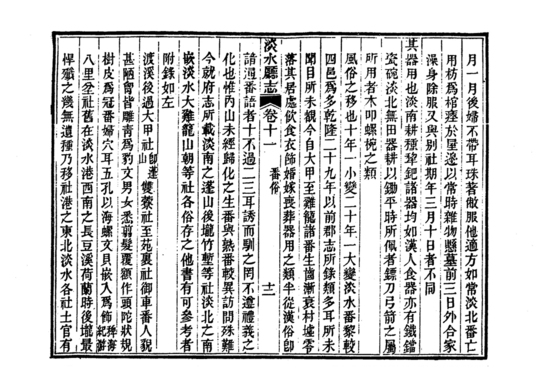 月一月後婦不帶耳珠著敝服他適方如常淡北番亡
用枋為棺瘞於屋邊以常時雜物懸墓前三日外合家
澡身除服又與別社期年三月十日者不同
其器用也淡南耕種犂鈀諸器均如漢人食器亦有鐵鐺
瓷碗淡北無田器耕以鋤平時所佩者鏢刀弓箭之屬
所用者木叩螺椀之類
風俗之移也十年一小變二十年一大變淡水番黎較
四邑為多乾隆二十九年以前郡志所錄類多耳所未
聞目所未覩今自大甲至雞籠諸番生齒漸衰村墟零
落其居處飲食衣飾婚嫁喪葬器用之類半從漢俗即
淡水廳志 卷十一 番俗 十二
諳通番語者十不過二三耳誘而馴之罔不遵禮義之
化也惟內山未經歸化之生番與熟番較異訪問殊難
今就府志所載淡南之蓬山後壠竹塹等社淡北之南
嵌淡水大雞籠山朝等社各俗存之他書有可參考者
附錄如左
渡溪後過大甲社即蓬山雙藔社至苑裏社御車番人貌
甚陋胷背雕青為豹文男女悉翦髮覆額作頭陀狀規
樹皮為冠番婦穴耳五孔以海螺文貝嵌入為飾
八里坌社舊在淡水港西南之長豆溪荷蘭時後壠最
悍殲之幾無遺種乃移社港之東北淡水各社土官有